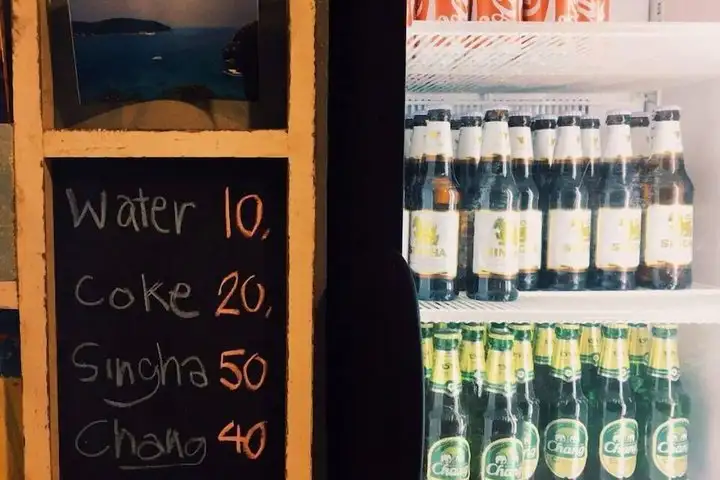 Water 10,
Coke 20,
Singha 50
Chang 40
SINGHA
Chang
Chang
Chang
Chang
Chang